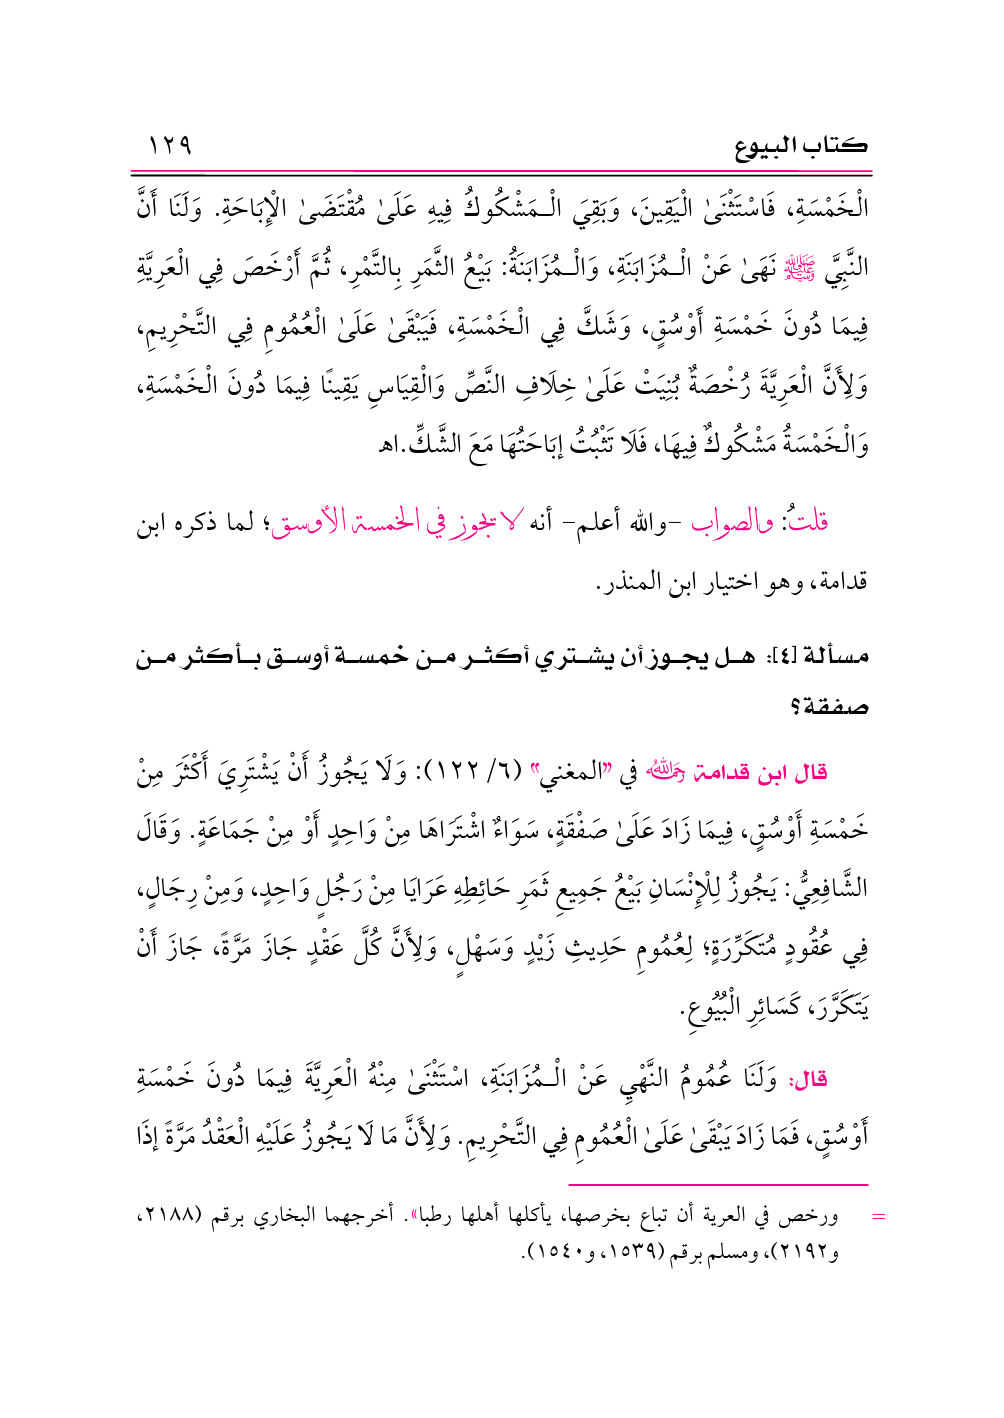 كتاب البيوع ١٢٩
الْخَمْسَةِ، فَاسْتَثْنَىٰ الْيَقِينَ، وَبَقِيَ الْـمَشْكُوكُ فِيهِ عَلَىٰ مُقْتَضَىٰ الْإِبَاحَةِ. وَلَنَا أَنَّ
النَّبِيَّ ﷺ نَهَىٰ عَنْ الْـمُزَابَنَةِ، وَالْـمُزَابَنَةُ: بَيْعُ الثَّمَرِ بِالتَّمْرِ، ثُمَّ أَرْخَصَ فِي الْعَرِيَّةِ
فِيمَا دُونَ خَمْسَةِ أَوْسُقٍ، وَشَكَّ فِي الْخَمْسَةِ، فَيَبْقَىٰ عَلَىٰ الْعُمُومِ فِي التَّحْرِيمِ،
وَلِأَنَّ الْعَرِيَّةَ رُخْصَةٌ بُنِيَتْ عَلَىٰ خِلَافِ النَّصِّ وَالْقِيَاسِ يَقِينًا فِيمَا دُونَ الْخَمْسَةِ،
وَالْخَمْسَةُ مَشْكُوكٌ فِيهَا، فَلَا تَثْبُتُ إبَاحَتُهَا مَعَ الشَّكِّ.اﻫ
قلتُ: والصواب –والله أعلم– أنه لا يجوز في الخمسة الأوسق؛ لما ذكره ابن
قدامة، وهو اختيار ابن المنذر.
مسألة [٤]: هـل يجـوز أن يشـتري أكثـر مـن خمسـة أوسـق بـأكثر مـن
صفقة؟
قال ابن قدامة رحمه الله في "المغني" (٦/ ١٢٢): وَلَا يَجُوزُ أَنْ يَشْتَرِيَ أَكْثَرَ مِنْ
خَمْسَةِ أَوْسُقٍ، فِيمَا زَادَ عَلَىٰ صَفْقَةٍ، سَوَاءٌ اشْتَرَاهَا مِنْ وَاحِدٍ أَوْ مِنْ جَمَاعَةٍ. وَقَالَ
الشَّافِعِيُّ: يَجُوزُ لِلْإِنْسَانِ بَيْعُ جَمِيعِ ثَمَرِ حَائِطِهِ عَرَايَا مِنْ رَجُلٍ وَاحِدٍ، وَمِنْ رِجَالٍ،
فِي عُقُودٍ مُتَكَرِّرَةٍ؛ لِعُمُومِ حَدِيثِ زَيْدٍ وَسَهْلٍ، وَلِأَنَّ كُلَّ عَقْدٍ جَازَ مَرَّةً، جَازَ أَنْ
يَتَكَرَّرَ، كَسَائِرِ الْبُيُوعِ.
قال: وَلَنَا عُمُومُ النَّهْيِ عَنْ الْـمُزَابَنَةِ، اسْتَثْنَىٰ مِنْهُ الْعَرِيَّةَ فِيمَا دُونَ خَمْسَةِ
أَوْسُقٍ، فَمَا زَادَ يَبْقَىٰ عَلَىٰ الْعُمُومِ فِي التَّحْرِيمِ. وَلِأَنَّ مَا لَا يَجُوزُ عَلَيْهِ الْعَقْدُ مَرَّةً إذَا
= ورخص في العرية أن تباع بخرصها، يأكلها أهلها رطبا». أخرجهما البخاري برقم (٢١٨٨،
و٢١٩٢)، ومسلم برقم (١٥٣٩، و١٥٤٠).